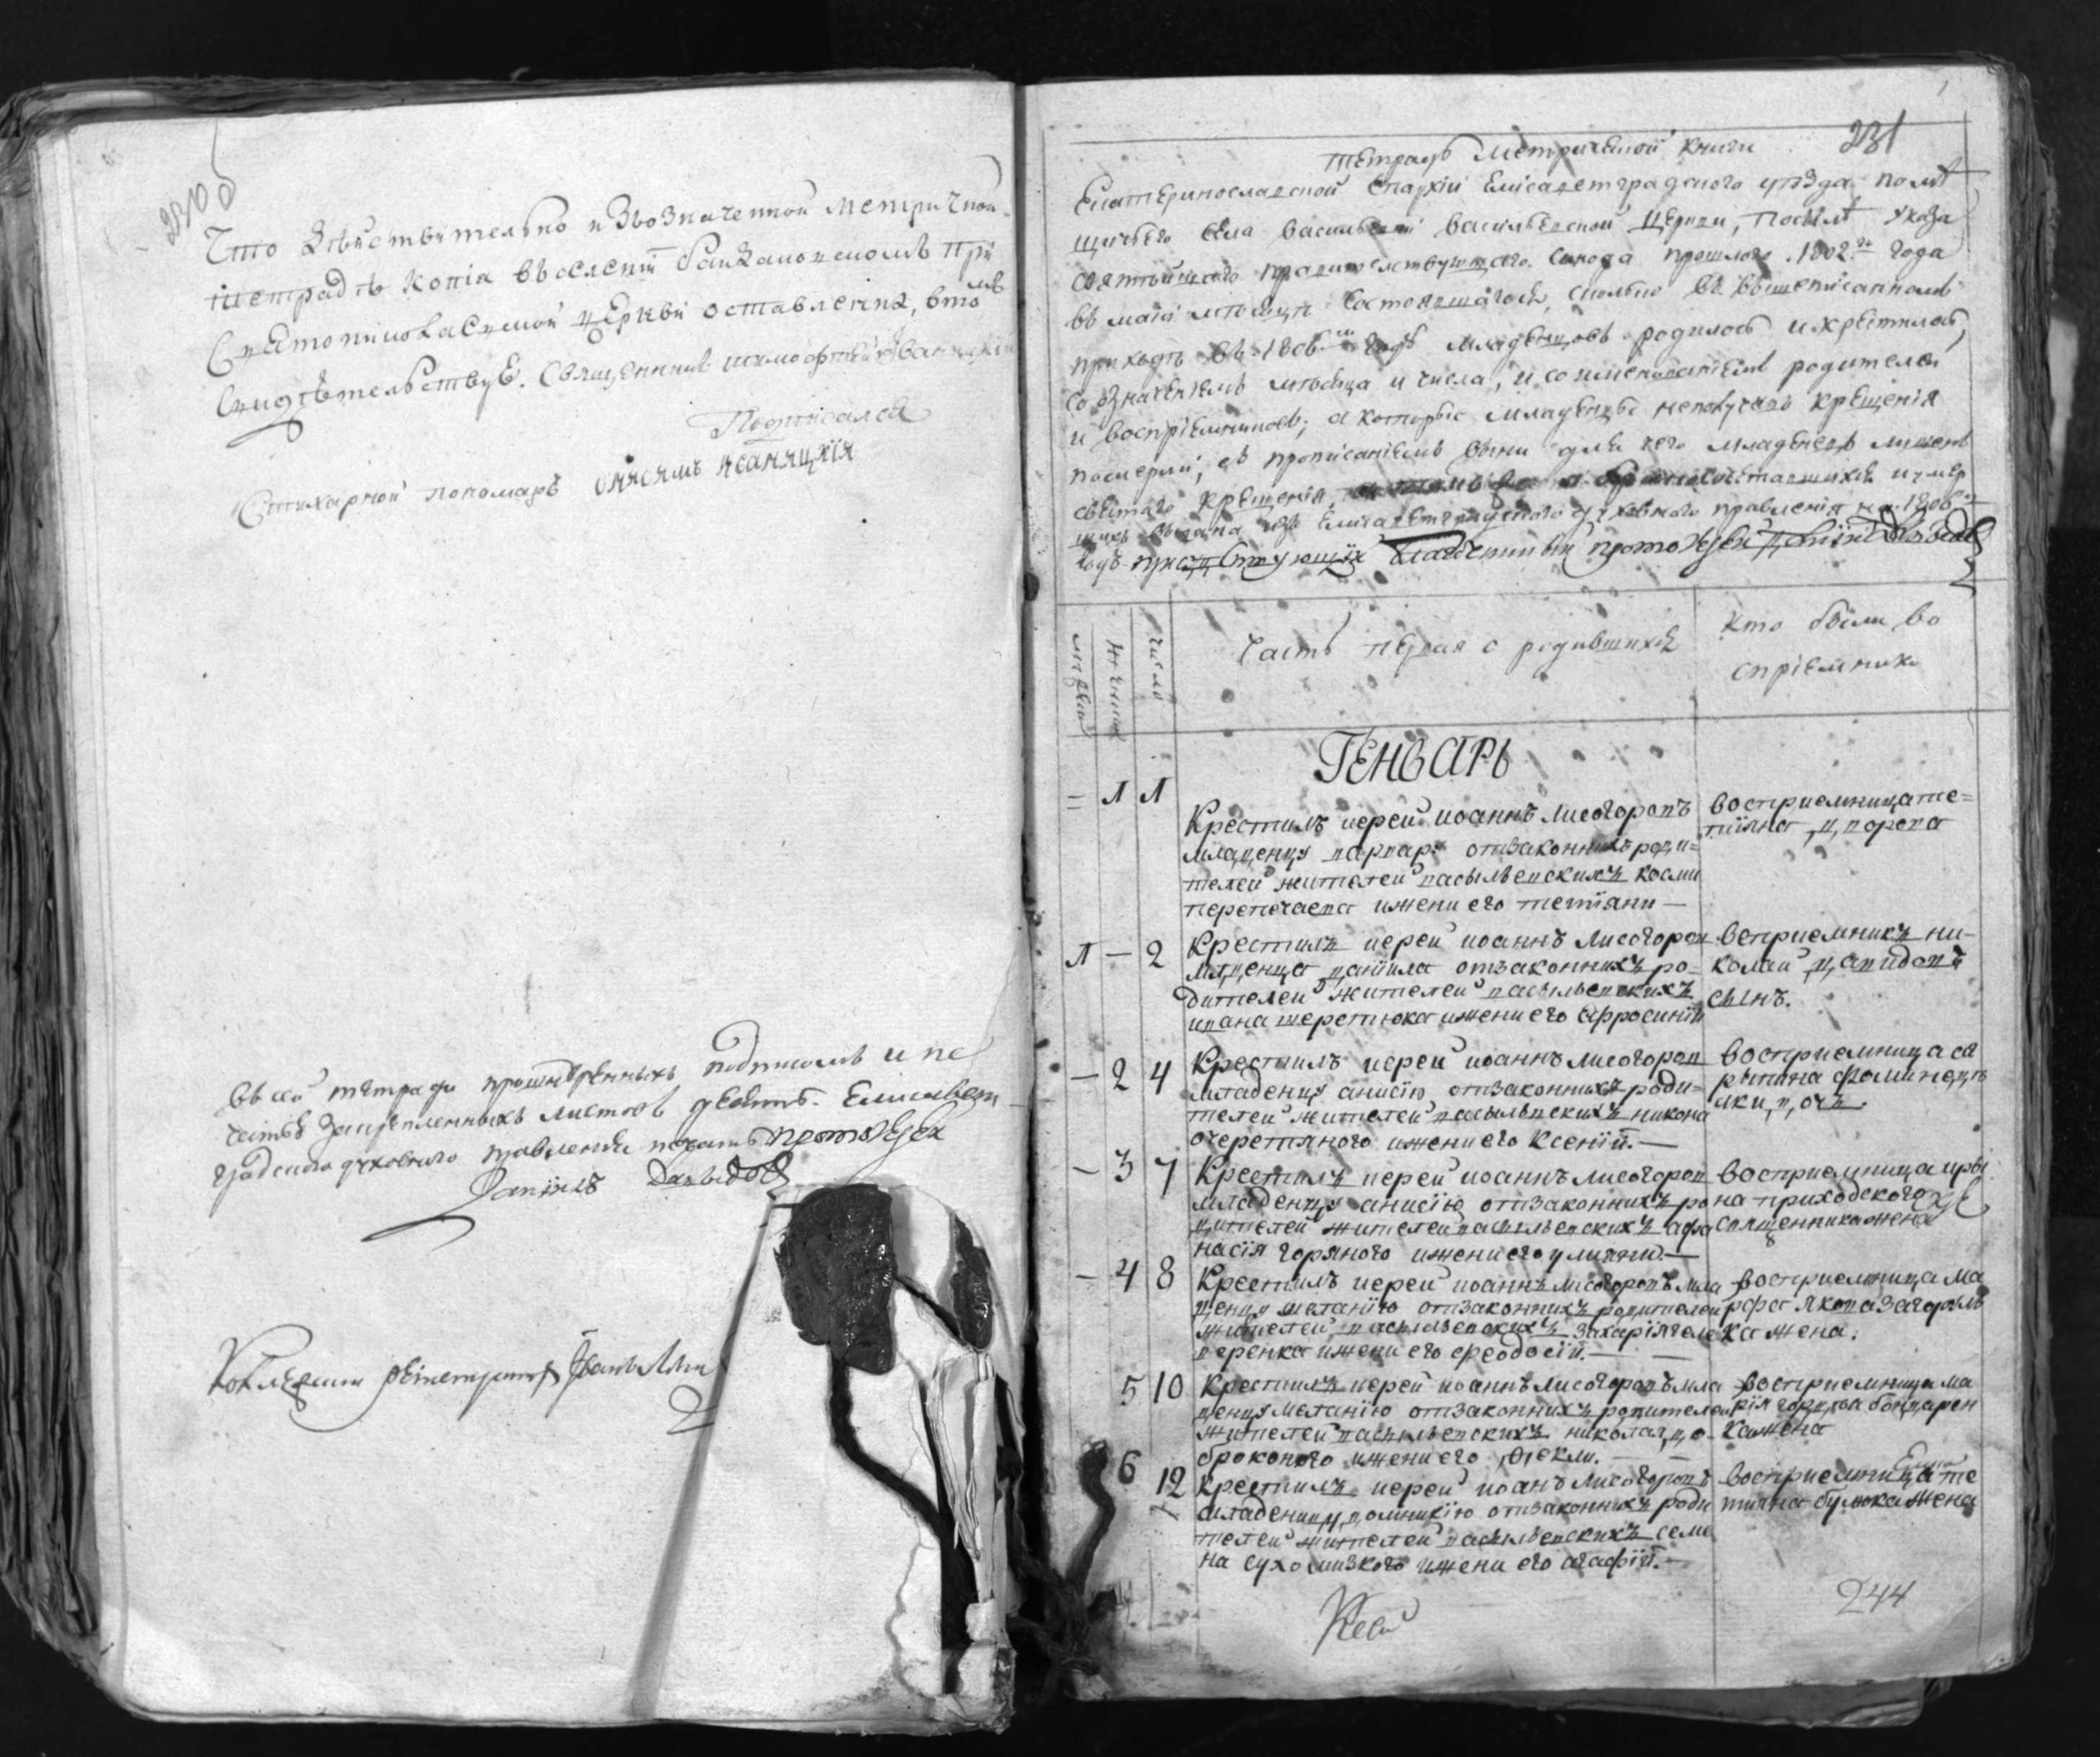 230 об
Что действительно извозначенной метричной
тетрадѣ копія въселеніи при
Святониколаевской церкви оставленна, втомъ
Свидѣтельствуе. Священникъ тимофтей Иваницкій
Подписался
Стихарной пономарь
въ сей тетради прошнуренныхъ подписомъ и пе
чатью закрепленныхъ листовъ девять. Елисавет
градского духовного правленія печать протоіерей
Даніилъ Давыдовъ
Коллежскій регистраторъ
231
Тетрадь Метрической книги
Екатеринославской Епархіи Елисаветградского уѣзда помѣ
щичьего села Василевки Васильевской церкви, посилѣ указа
святѣйшаго правителствующаго Синода прошлого 1802го года
въ маіи мѣсяцѣ состоявшагося, сколько въ вышеписанномъ
приходѣ въ 1806м годѣ младенцовъ родилось и крѣстилось,
со означеніемъ мѣсяца и числа, и со именованіемъ родителей
и воспріемниковъ; а которые младенцы неполучивъ крещенія
померли, съ прописаніемъ вины для чего младенецъ лишенъ
святаго крещенія, сочетавшихся и умер
шихъ выдана изъ Елисаветградского духовного правленія на 1806й
годъ присудствующій благочинный протоіерей Даніилъ Давыдовъ
мужеск
женска
число
Часть первая о родившихся
Кто были во
спріемники
ГЕНВАРЬ
= 1 1
Крестилъ иерей иоаннъ лисогоровъ
младенцу варвару отзаконнихъ роди=
телей жителей васильевскихъ косми
перепечаева ижени его тетіяни —
восприемница те=
тіяна , д, дорова
1 — 2
Крестилъ иерей иоаннъ лисогоров
младенца даніила отзаконнихъ ро-
дителей жителей васильевскихъ
ивана шерстюка ижени его Єфросиніи
восприемникъ ни-
колай давидовъ
сынъ.
— 2 4
Крестилъ иерей иоаннъ лисогоров
младенцу анисію отзаконнихъ роди-
телей жителей васильевскихъ никона
очеретяного ижени его Ксеніи. —
восприемница ев
— 3 7
Крестилъ иерей иоаннъ лисогоров
младенцу анисію отзаконнихъ ро
дителей жителей васильевскихъ афа
насія горяного ижени его уляни. —
восприемница ири
на приходского
священника жена
— 4 8
Крестилъ иерей иоаннъ лисогоровъ мла
денцу меланію отзаконнихъ родителей
жителей васильевскихъ захарія геле
веренка ижени его феодосіи. —
восприемница ма
рфа якова загорул
ка жена.
5 10
Крестилъ иерей иоаннъ лисогоровъ мла
денцу меланію отзаконнихъ родителей
жителей васильевскихъ николая, до
броконого ижени его ѳекли. —
восприемница ма
рія гордѣя бондарен
ка жена
6 12
Крестилъ иерей иоанъ лисогоровъ
младенцу домникію отзаконнихъ роди
телей жителей васильевскихъ семе
на сухомизкого ижени его агафіи. —
восприемница те
тияна булюка жена
244